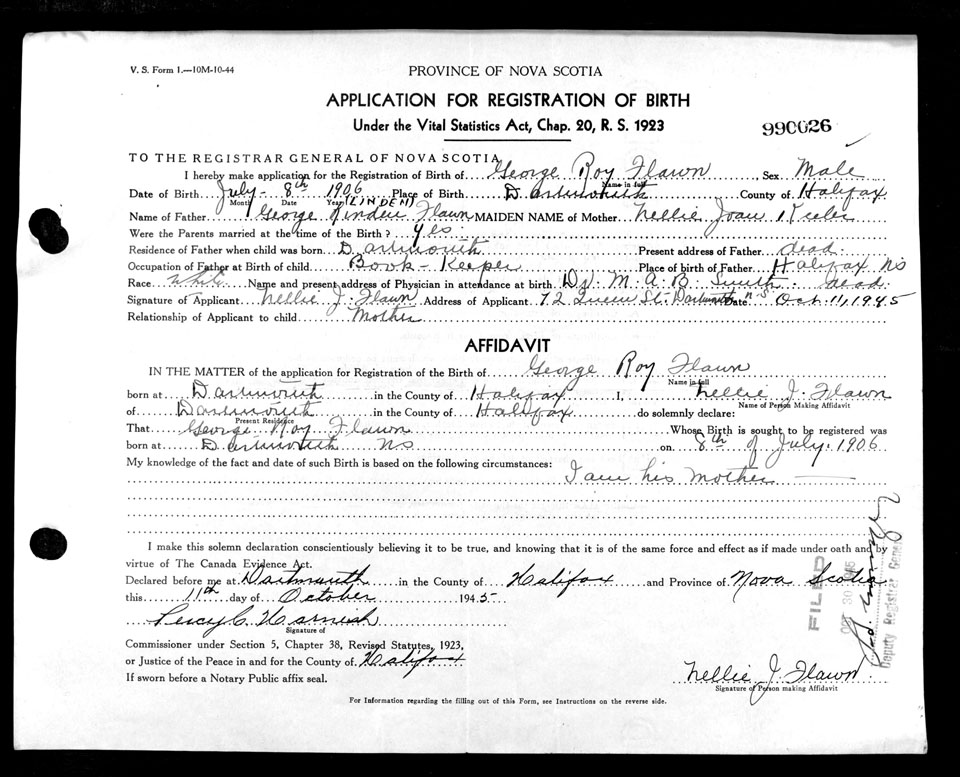 V. S. Form 1.—10M-10-44
PROVINCE OF NOVA SCOTIA
APPLICATION FOR REGISTRATION OF BIRTH
Under the Vital Statistics Act, Chap. 20, R. S. 1923
990026
TO THE REGISTRAR GENERAL OF NOVA SCOTIA
I hereby make application for the Registration of Birth of George Roy Flawn Sex Male
Name in full
Date of Birth July 8th 1906 Place of Birth Dartmouth County of Halifax
Month Date Year (LINDEN)
Name of Father George Linden Flawn MAIDEN NAME of Mother Nellie Joan
Were the Parents married at the time of the Birth? Yes.
Residence of Father when child was born Dartmouth Present address of Father dead.
Occupation of Father at Birth of child Book-Keeper Place of birth of Father Halifax NS
Race White Name and present address of Physician in attendance at birth Dr. M. A. B. Smith. dead
Signature of Applicant Nellie J. Flawn Address of Applicant 72 Queen St. Dartmouth N.S. Date Oct. 11, 1945
Relationship of Applicant to child Mother
AFFIDAVIT
IN THE MATTER of the application for Registration of the Birth of George Roy Flawn
Name in full
born at Dartmouth in the County of Halifax I, Nellie J. Flawn
Name of Person Making Affidavit
of Dartmouth in the County of Halifax do solemnly declare:
Present Residence
That George Roy Flawn Whose Birth is sought to be registered was
born at Dartmouth NS on 8th of July. 1906
My knowledge of the fact and date of such Birth is based on the following circumstances:
I am his Mother
I make this solemn declaration conscientiously believing it to be true, and knowing that it is of the same force and effect as if made under oath and by
virtue of The Canada Evidence Act.
Declared before me at Dartmouth in the County of Halifax and Province of Nova Scotia
this 11th day of October 1945
Percy C. Harnish
Signature of
Commissioner under Section 5, Chapter 38, Revised Statutes, 1923,
or Justice of the Peace in and for the County of Halifax
If sworn before a Notary Public affix seal.
FILED
OCT 30 1945
Deputy Registrar General
Nellie J. Flawn
Signature of Person making Affidavit
For Information regarding the filling out of this Form, see Instructions on the reverse side.